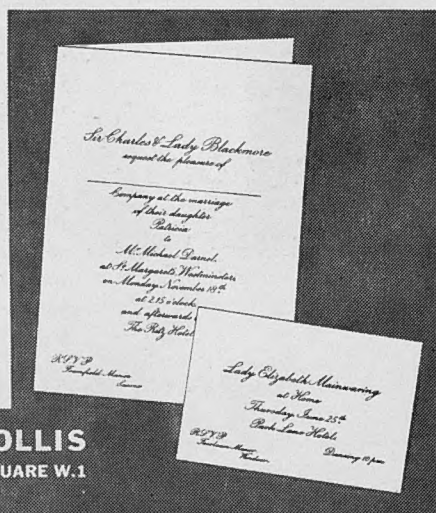 Sir Charles & Lady Blackmore
request the pleasure of
Company at the marriage
of their daughter
Patricia
to
Mr. Michael Darnol.
at St. Margaret's, Westminster
on Monday, November 18th
at 2.15 o'clock
and afterwards
The Ritz Hotel
R.S.V.P.
Manor
Lady Elizabeth Mainwaring
at Home
Thursday, June 25th
Park Lane Hotel
R.S.V.P.
Dancing 10 pm
OLLIS
UARE W.1